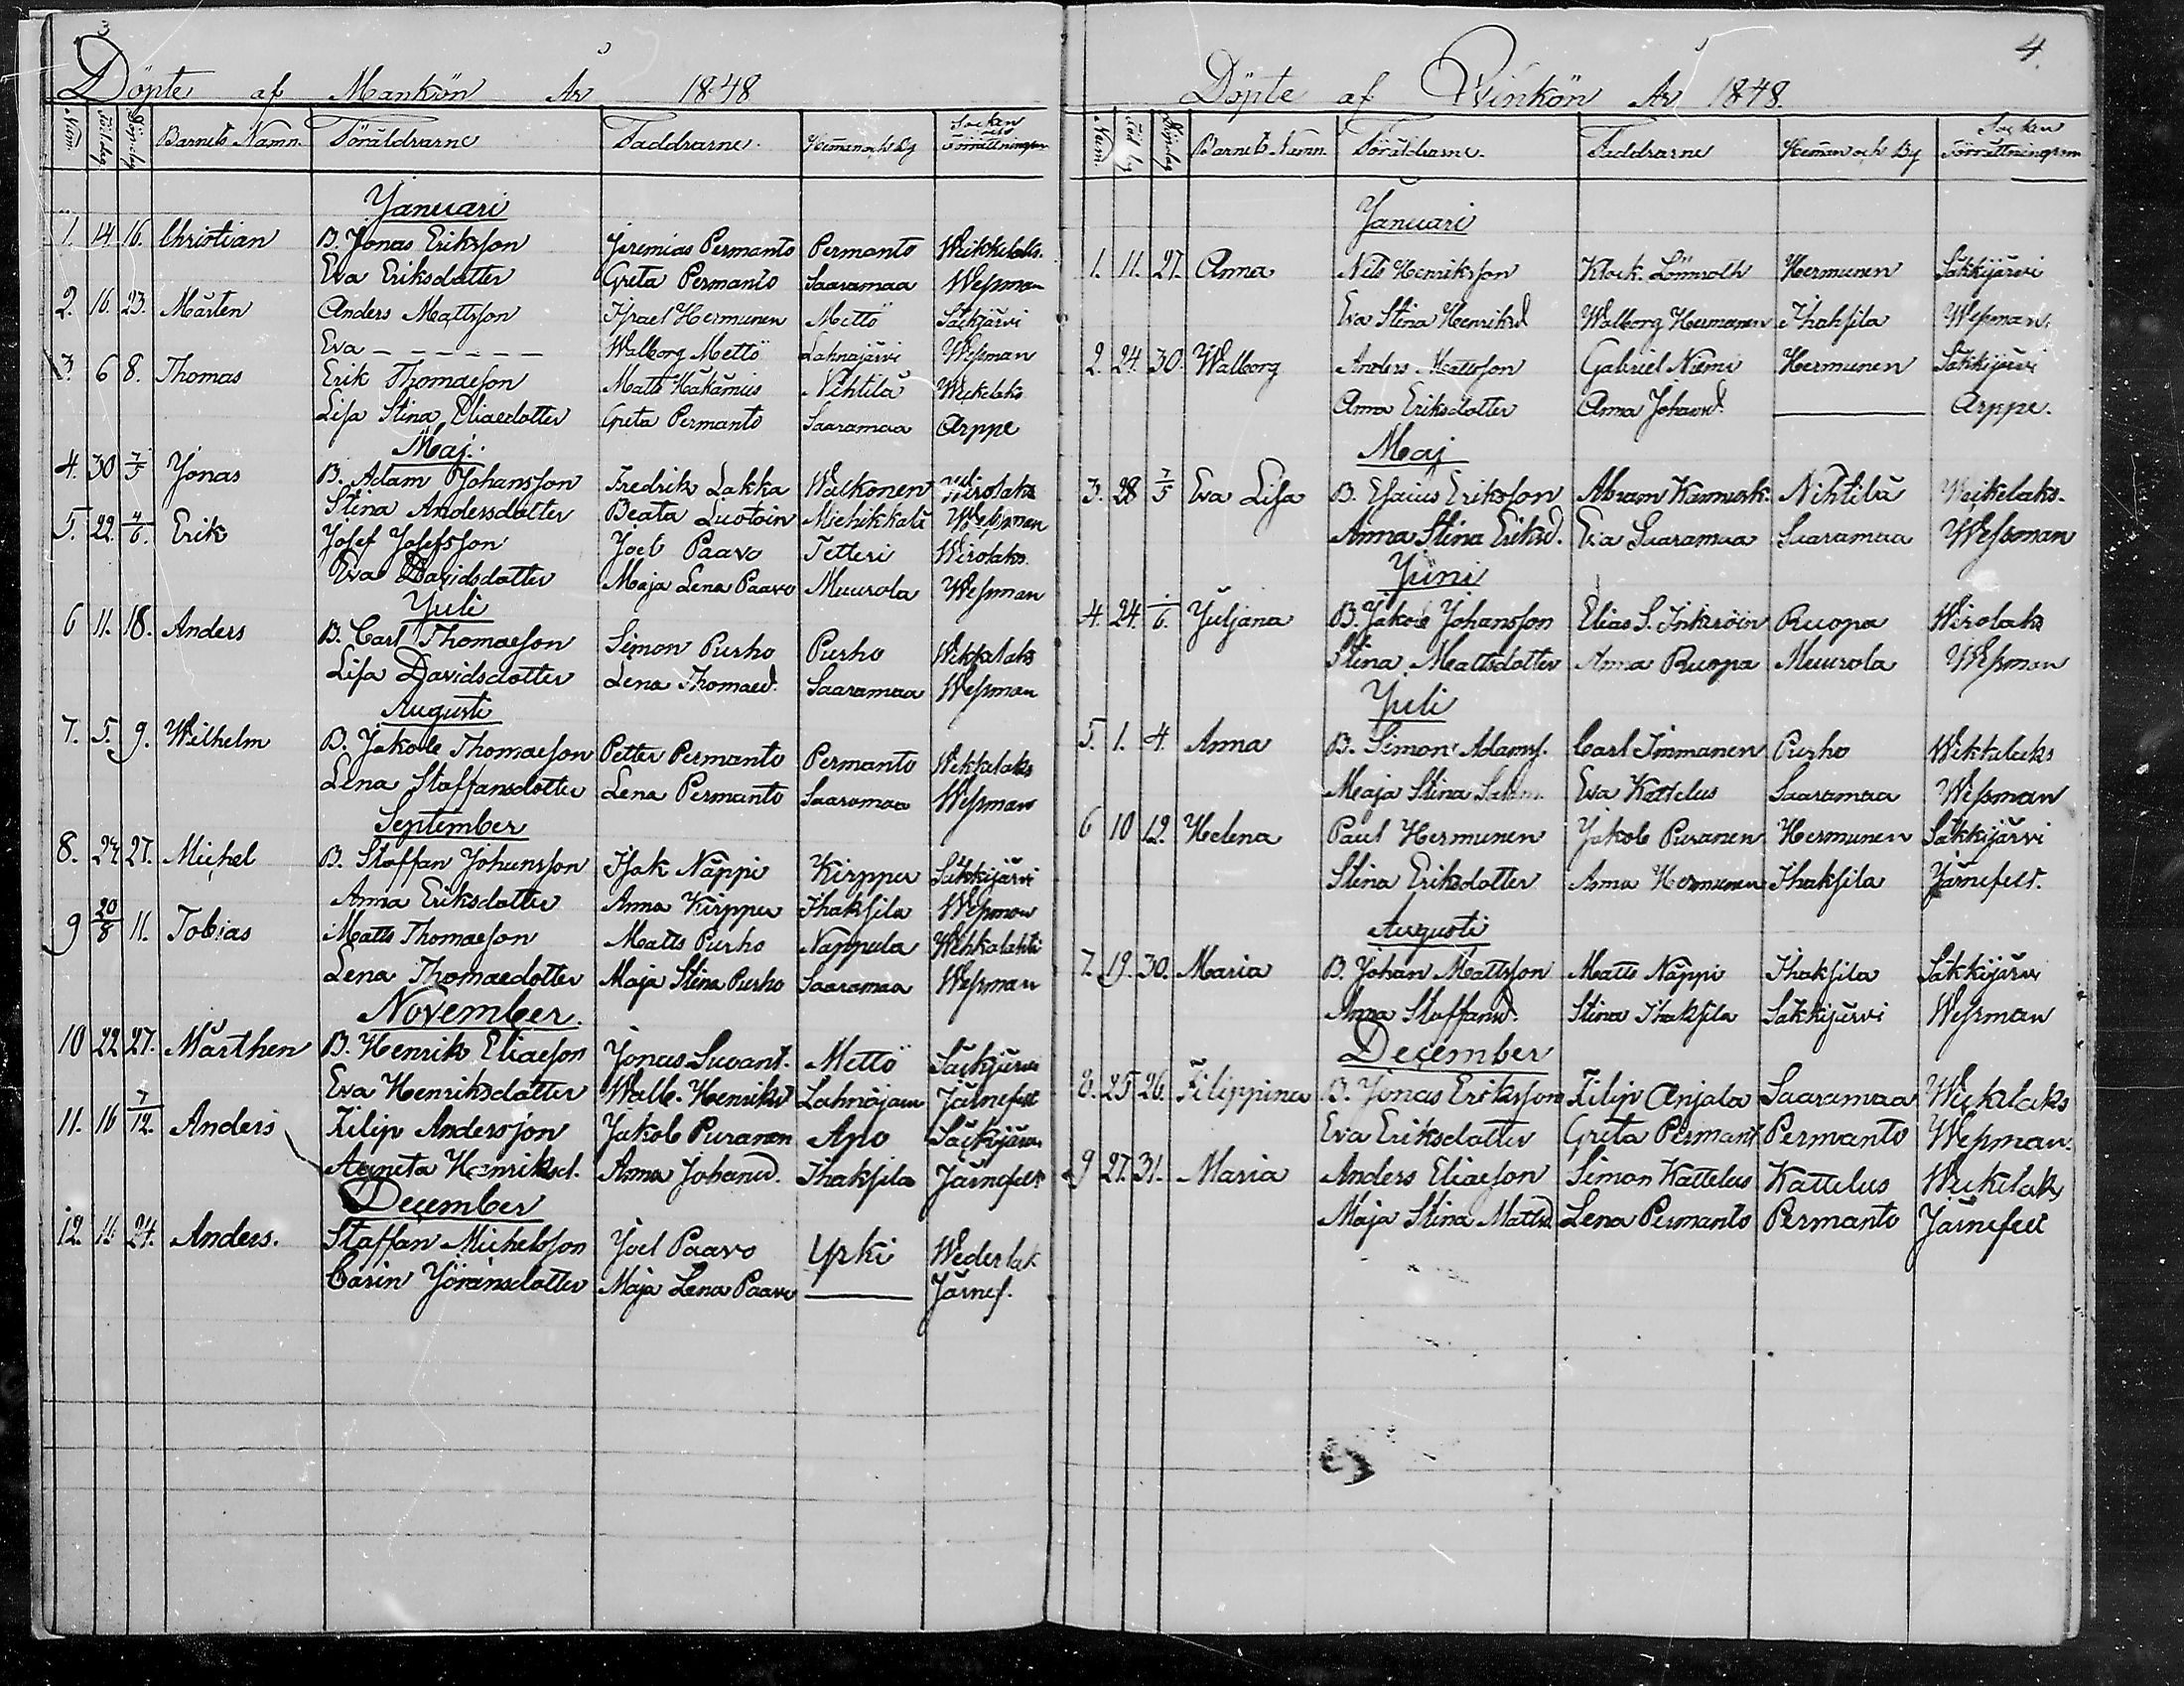 3
Döpte af Mankön År 1848
Num Föd.dag Döp.dag Barnets Namn. Föräldrarne Faddrarne. Heman och By Socken och Förrättningsm
Januari
1. 14 16. Christian B. Jonas Eriksson Jeremias Permanto Permanto Weikkelaks.
Eva Eriksdotter Greta Permanto Saaramaa Wessman
2. 16. 23. Mårten Anders Mattsson Israel Hermunen Mettö Säckjärvi
Eva — — — — — Walborg Mettö Lahnajärvi Wessman
3. 6 8. Thomas Erik Thomasson Matts Häkämies Nihtilä Weckelaks
Lisa Stina Eliaedotter Greta Permanto Saaramaa Arppe
Maj.
4. 30 7/5 Jonas B. Adam Johansson Fredrik Lakka Walkonen Wirolaks
Stina Andersdotter Beata Luotoin Miehikkälä Wessman
5. 22. 4/6. Erik Josef Josefsson Joel Paavo Tetteri Wirolaks
Eva Davidsdotter Maja Lena Paavo Muurola Wessman
Juli
6 11. 18. Anders B. Carl Thomaesson Simon Purho Purho Wekkelaks
Lisa Davidsdotter Lena Thomaed. Saaramaa Wessman
Augusti
7. 5. 9. Wilhelm B. Jakob Thomaesson Petter Permanto Permanto Wekkelaks
Lena Staffansdotter Lena Permanto Saaramaa Wessman
September
8. 24 27. Michel B. Staffan Johansson Isak Näppi Kirppu Säkkijärvi
Anna Eriksdotter Anna Kirppu Ihaksila Wessman
9 20/8 11. Tobias Matts Thomaesson Matts Purho Nappula Wehkalahti
Lena Thomaedotter Maja Stina Purho Saaramaa Wessman
November.
10 22 27. Mårthen B. Henrik Eliaesson Jonas Suvant. Mettö Säckjärvi
Eva Henriksdotter Walb. Henriksd Lahnajärvi Järnefelt
11. 16 7/12. Anders Filip Andersson Jakob Puranen Apo Säckijärvi
Agneta Henriksd. Anna Johansd. Ihaksila Järnefelt
December
12. 11 24. Anders. Staffan Michelsson Joel Paavo Yrki Wederlak
Carin Jöransdotter Maja Lena Paavo ——— Järnef.
4.
Döpte af Qvinkön År 1848.
Num Föd. dag Döpdag Barnets Namn. Föräldrarne. Faddrarne Heman och By Socken Förrättningsm
Januari
1. 11. 27. Anna Nils Henriksson Klock. Lönnroth Hermunen Säkkijärvi
Eva Stina Henriksd Walborg Hermunen Ihaksila Wessman.
2. 24. 30. Walborg Anders Mattsson Gabriel Niemi Hermunen Säkkijärvi
Anna Eriksdotter Anna Johansd. ——— Arppe.
Maj
3. 28 7/5 Eva Lisa B. Esaias Eriksson Abram Nihtilä Weckelaks.
Anna Stina Eriksd. Eva Saaramaa Saaramaa Wessman
Juni
4. 24. 1/6. Juljana B. Jakob Johansson Elias S. Inkeröin Ruopa Wirolaks
Stina Mattsdotter Anna Ruopa Muurola Wessman
Juli
5. 1. 4. Anna B. Simon Adamss. Carl Immanen Purho Wekkelaks
Maja Stina Eva Kattelus Saaramaa Wessman
6 10 12. Helena Paul Hermunen Jakob Puranen Hermunen Säkkijärvi
Stina Eriksdotter Anna Hermunen Ihaksila Järnefelt.
Augusti
7. 19. 30. Maria B. Johan Mattsson Matts Näppi Ihaksila Säkkijärvi
Anna Staffansd. Stina Ihaksila Säkkijärvi Wessman
December
8. 25 26. Filippina B. Jonas Eriksson Filip Anjala Saaramaa Weckelaks
Eva Eriksdotter Greta Permant Permanto Wessman.
9 27. 31. Maria Anders Eliaesson Simon Kattelus Kattelus Weckelaks
Maja Stina Mattsd. Lena Permanto Permanto Järnefelt